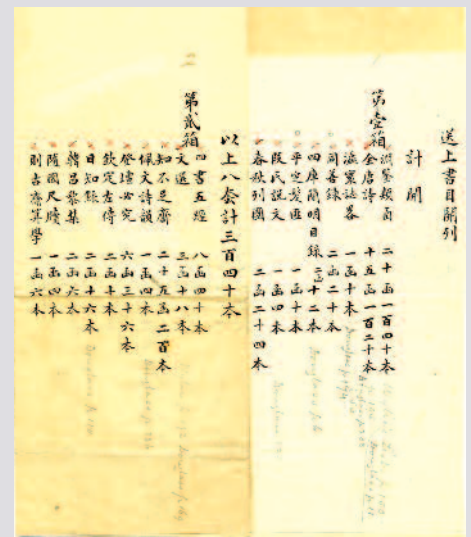 送上書目開列
計開
第壹箱
淵鑒類函 二十函一百四十本
全唐詩 十五函一百二十本
瀛寰誌畧 一函十本
同善錄 二函二十本
四庫簡明目錄 二函十二本
平定髮匪 一函十本
段氏說文 一函四本
春秋列國 二函二十四本
以上八套計三百四十本
第貳箱
四書五經 八函四十本
文選 三函十八本
知不足齋 二十五函二百本
佩文詩韻 一函四本
登壇必究 六函三十六本
欽定左傳 二函十本
日知錄 二函十六本
韓昌黎集 二函六本
隨園尺牘 一函四本
則古齋算學 一函六本